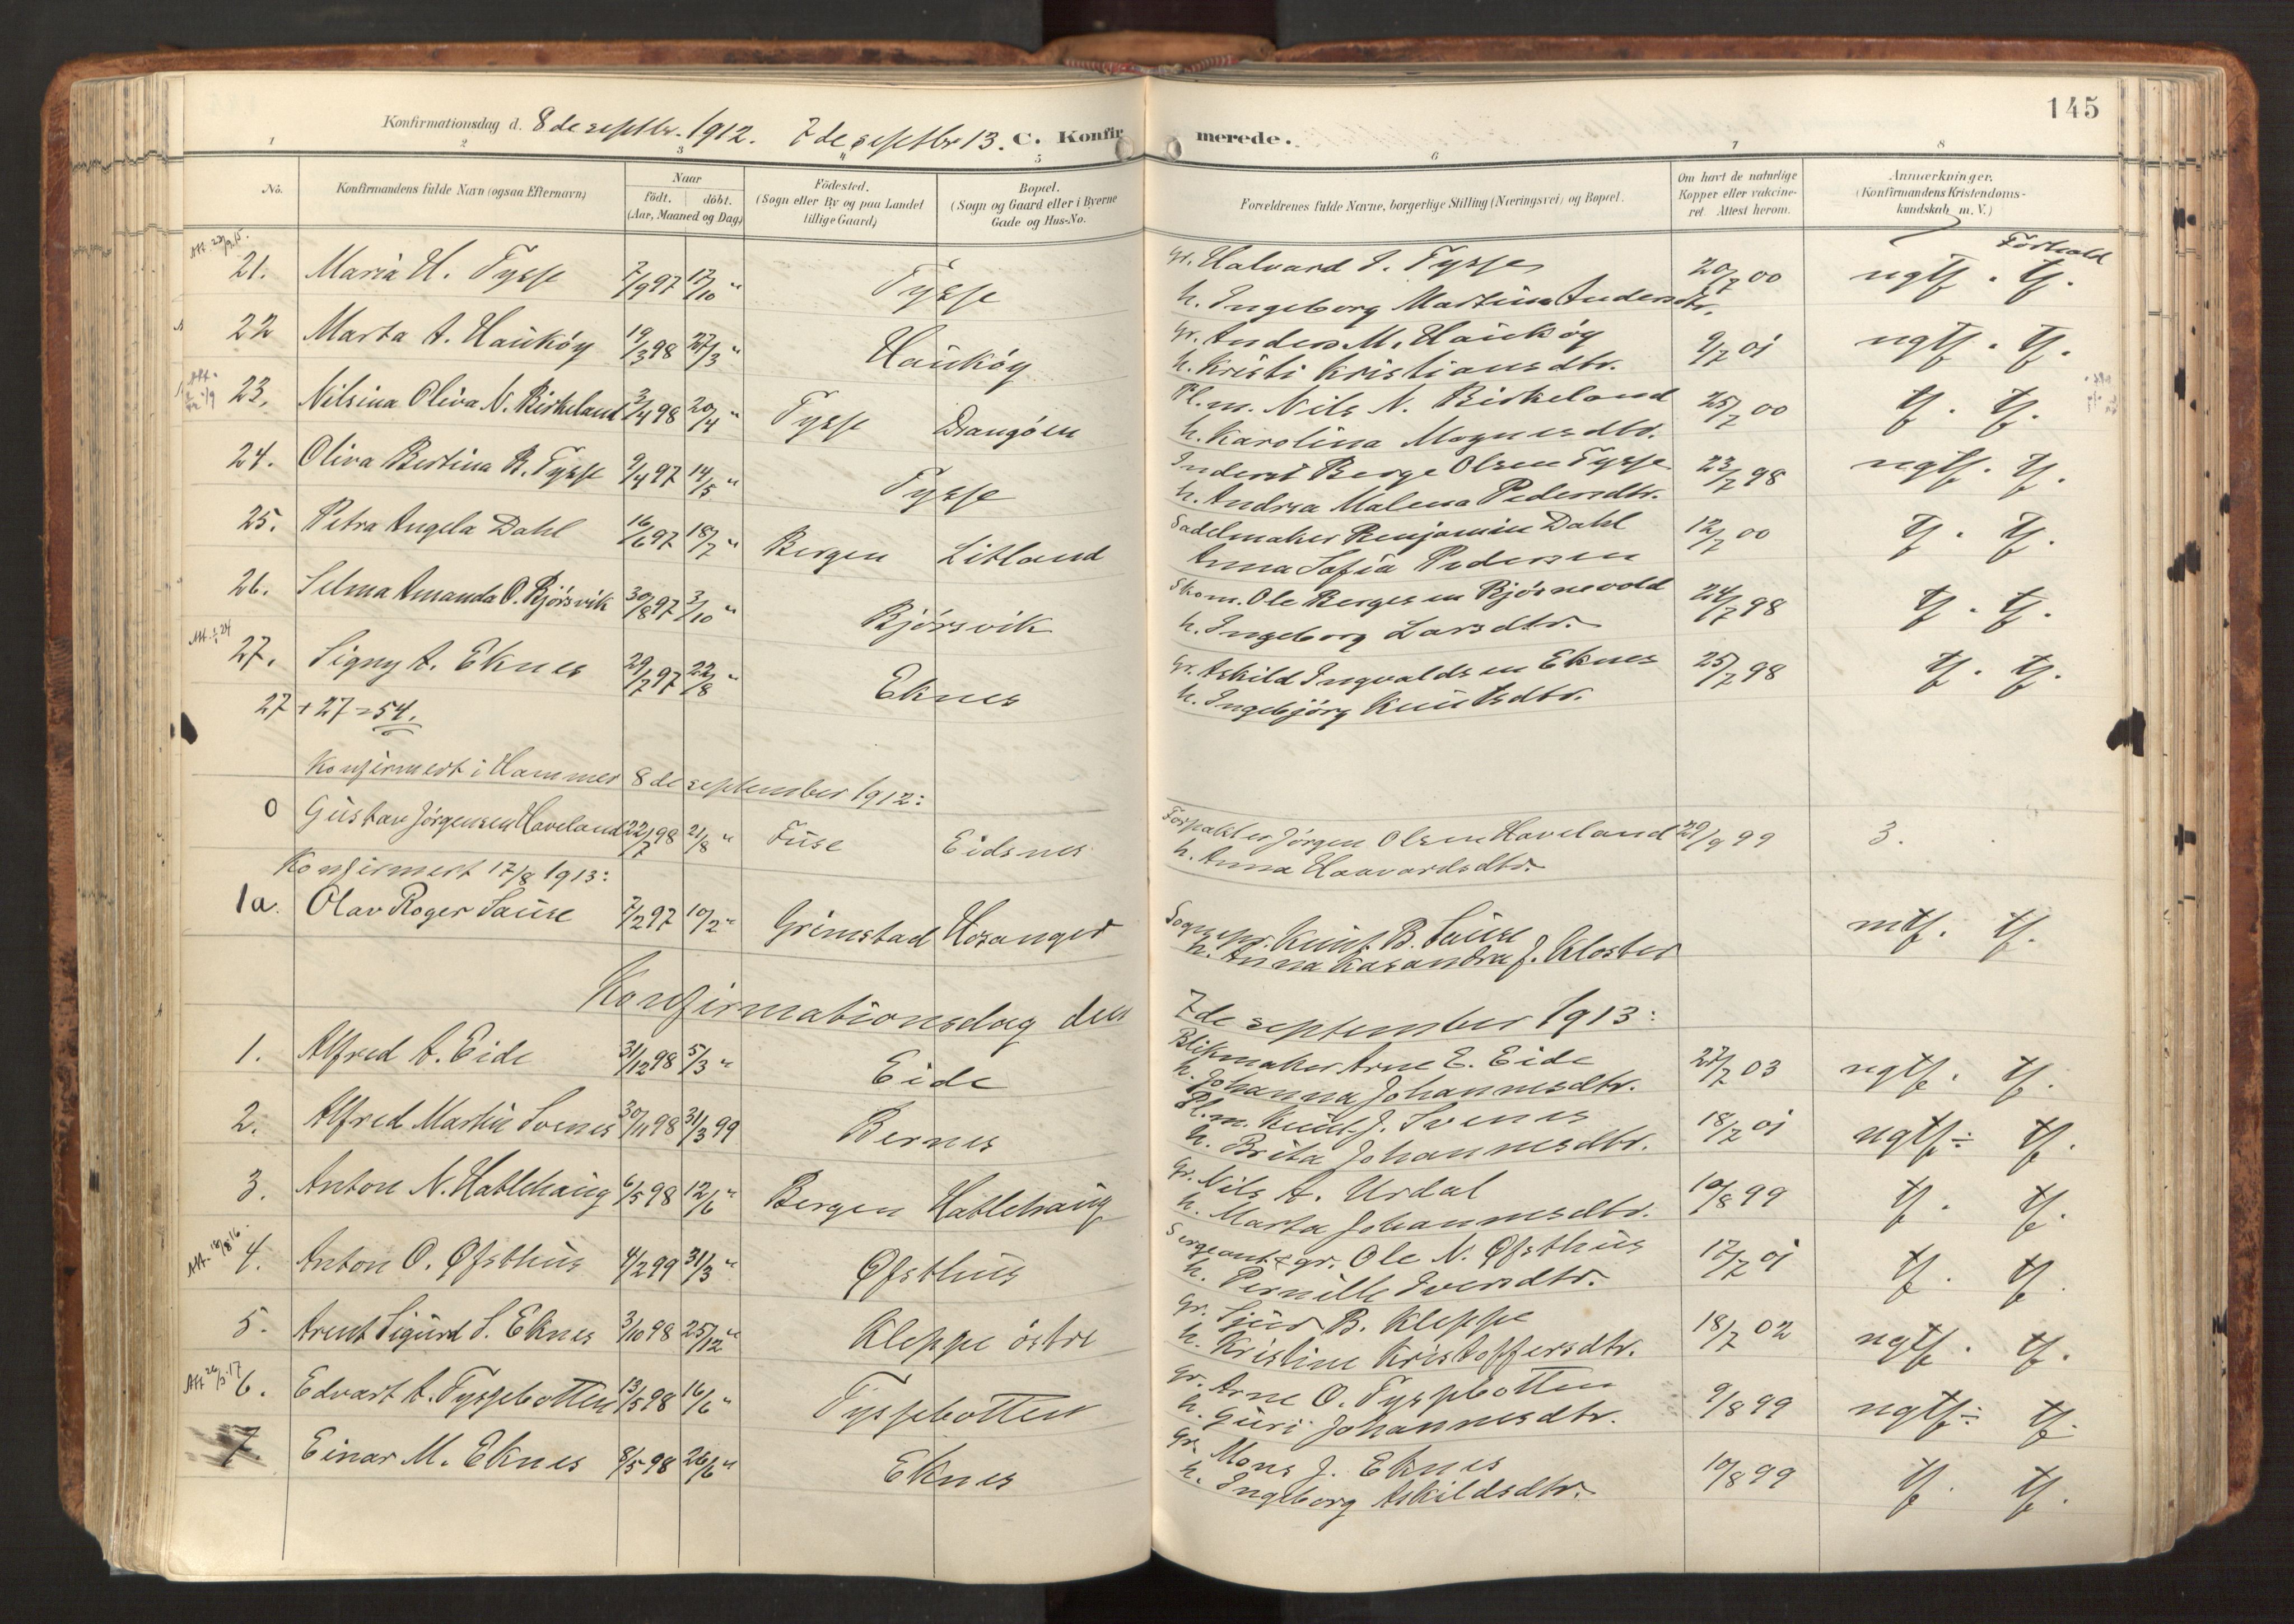 145
Konfirmationsdag d. 8de septbr. 1912. 7de septbr 13. C. Konfirmerede.
1 2 3 4 5 6 7 8
No. Konfirmandens fulde Navn (ogsaa Efternavn) Naar födt. döbt. (Aar, Maaned og Dag) Födested. (Sogn eller By og paa Landet tillige Gaard) Bopæl. (Sogn og Gaard eller i Byerne Gade og Hus-No. Forældrenes fulde Navne, borgerlige Stilling (Næringsvei) og Bopæl. Om havt de naturlige Kopper eller vakcineret. Attest herom. Anmærkninger. (Konfirmandens Kristendomskundskab m. V.)
Forhold
21. Maria H. Tysse 7/9 97 17/10 " Tysse gr. Halvard A. Tysse 20/7 00 ngtf. tf.
h. Ingeborg Martina Andersdtr.
22 Marta A. Hauköy 19/3 98 27/3 " Hauköy gr. Anders M. Hauköy 9/7 01 ngtf. tf.
h. Kristi Kristiansdtr.
23. Nilsina Oliva N. Birkeland 3/4 98 20/4 " Tysse Drangöen Pl.m. Nils N. Birkeland 25/7 00 tf. tf.
h. Karolina Magnesdtr.
24. Oliva Bertina B. Tysse 9/4 97 14/5 " Tysse Inderst Berge Olsen Tysse 23/7 98 ngtf. tf.
h. Andrea Malena Pedersdtr.
25. Petra Angela Dahl 16/6 97 18/7 " Bergen Litland Sadelmaker Benjamin Dahl 12/7 00 tf. tf.
Anna Sofia Pedersen
26. Selma Amanda O. Bjørsvik 30/8 97 3/10 " Bjørsvik Skom. Ole Bergesen Bjørnevold 24/7 98 tf. tf.
h. Ingeborg Larsdtr.
27. Signy A. Eknes 29/7 97 22/8 " Eknes gr. Askild Ingvaldsen Eknes 25/7 98 tf. tf.
h. Ingebjørg Knutsdtr.
27 + 27 = 54.
Konfirmert i Hammer 8de september 1912:
0 Gustav Jørgensen Haveland 22/7 98 21/8 " Fuse Eidsnes Forpakter Jørgen Olsen Haveland 29/9 99 3.
h. Anna Haavardsdtr.
Konfirmert 17/8 1913:
1a. Olav Roger Sause 7/2 97 10/2 " Grimstad Hosanger Sognepr. Knut B. Sause mtf. tf.
h. Anna Kasandra J. Kloster
Konfirmationsdag den 7de september 1913:
1. Alfred A. Eide 31/12 98 5/3 " Eide Blikmaker Arne E. Eide 27/7 03 ngtf. tf.
h. Johanna Johannesdtr.
2. Alfred Martin Svenes 30/11 98 31/3 99 Bernes Pl.m. Knut J. Svenes 18/7 01 ngtf ÷ tf.
h. Brita Johannesdtr.
3. Anton N. Hatlehaug 6/5 98 12/6 " Bergen Hatlehaug gr. Nils A. Urdal 10/8 99 tf. tf.
h. Marta Johannesdtr.
4. Anton O. Øfsthus 4/2 99 31/3 " Øfsthus Sergeant & gr. Ole N. Øfsthus 17/7 01 tf. tf.
h. Pernille Iversdtr.
5. Arent Sigurd S. Eknes 3/10 98 25/12 " Kleppe østre gr. Sjur B. Kleppe 18/7 02 ngtf. tf.
h. Kristine Kristoffersdtr.
Att 26/3 17 6. Edvart A. Tyssebotten 13/5 98 16/6 " Tyssebotten gr. Arne O. Tyssebotten 9/8 99 ngtf ÷ tf.
h. Guri Johannesdtr.
7. Einar M. Eknes 8/5 98 26/6 " Eknes gr. Mons J. Eknes 10/8 99 tf. tf.
h. Ingeborg Askildsdtr.